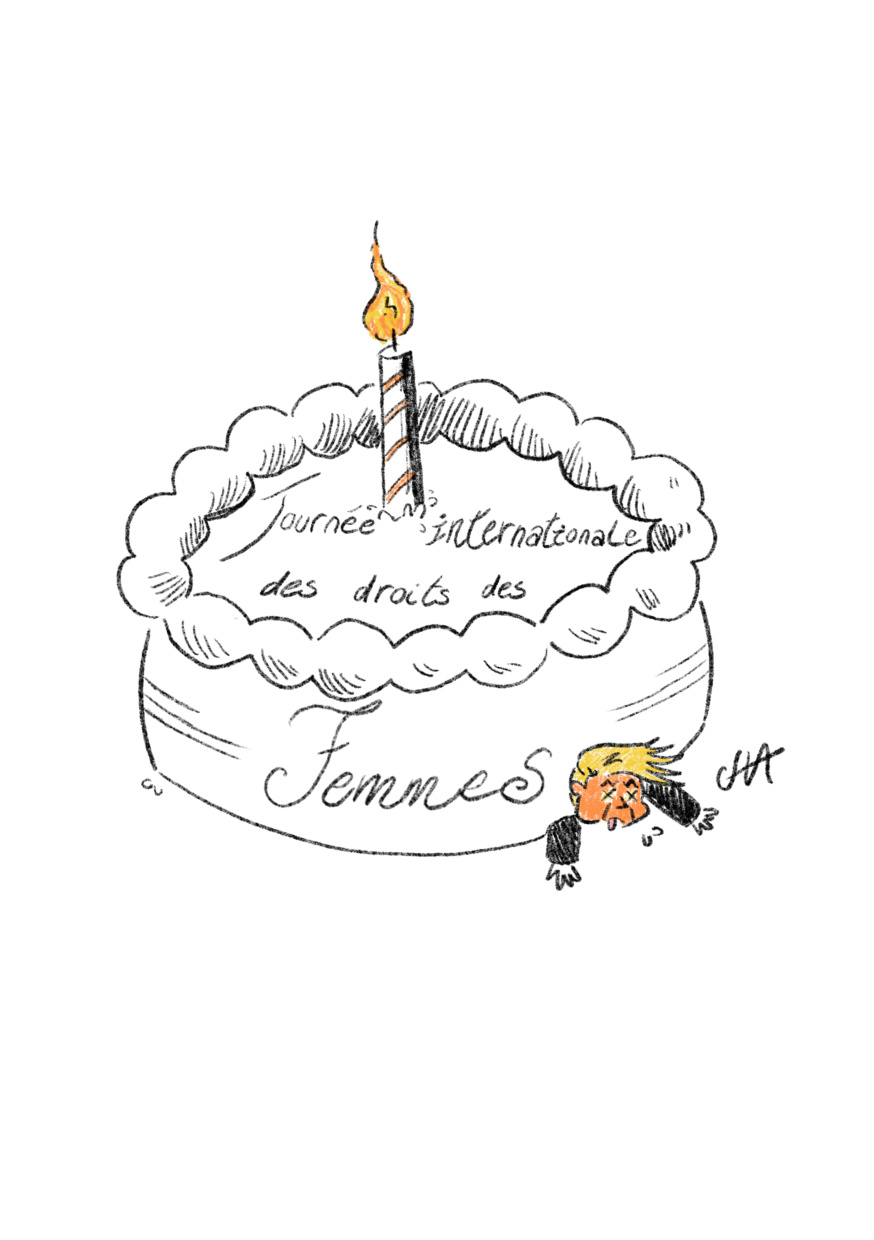 Journée internationale
des droits des
Femmes